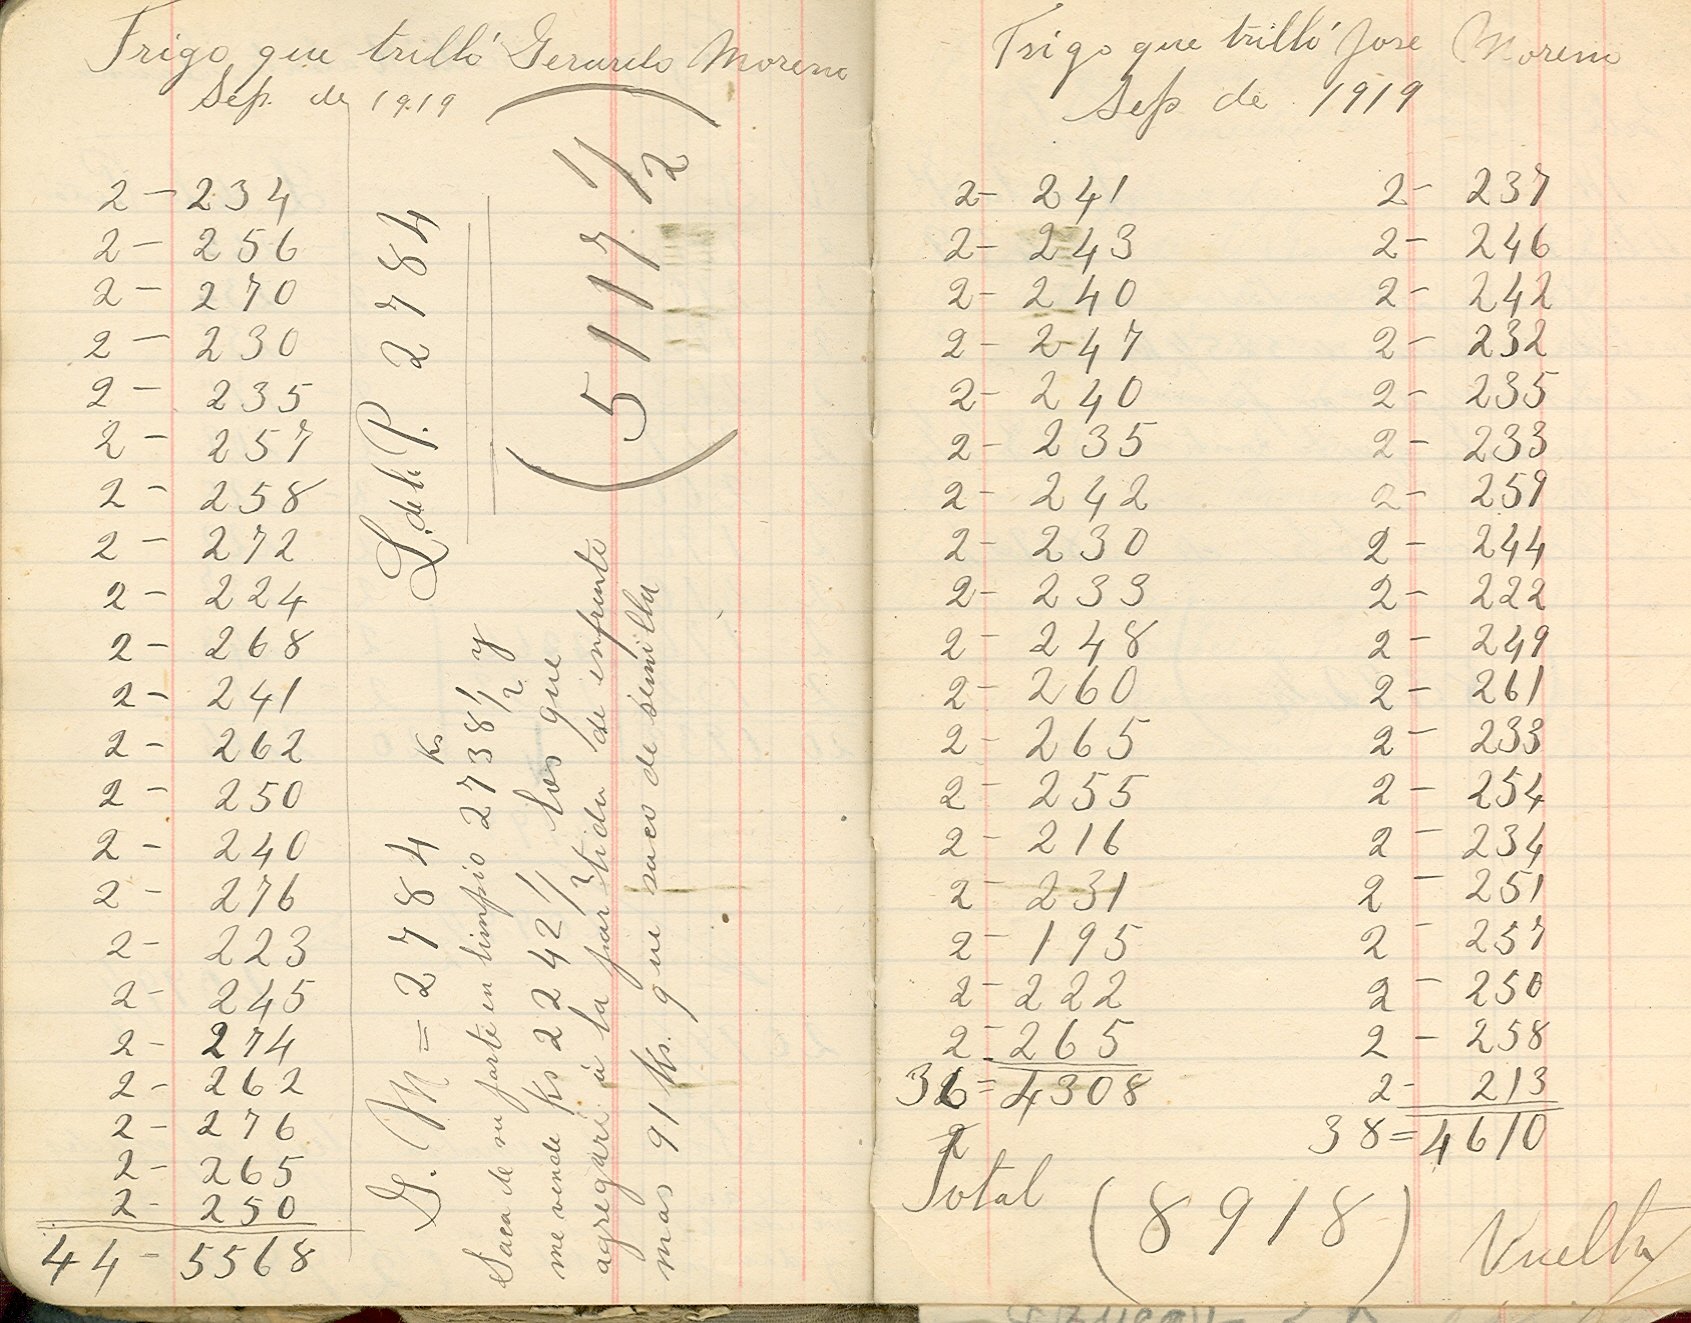 Trigo que trilló Gerardo Moreno
Sep. de 1919
2 - 234
2 - 256
2 - 270
2 - 230
2 - 235
2 - 257
2 - 258
2 - 272
2 - 224
2 - 268
2 - 241
2 - 262
2 - 250
2 - 240
2 - 276
2 - 223
2 - 245
2 - 274
2 - 262
2 - 276
2 - 265
2 - 250
44 - 5568
G. M = 2784 L. de la P. 2784
Saca de su parte en limpio Ks 2738 1/2 y
me vende Ks 2242 1/2 los que
agregaré á la partida de enfrente
mas 91 Ks. que saco de semilla
(5117 1/2)
Trigo que trilló Jose Moreno
Sep de 1919
2 - 241
2 - 243
2 - 240
2 - 247
2 - 240
2 - 235
2 - 242
2 - 230
2 - 233
2 - 248
2 - 260
2 - 265
2 - 255
2 - 216
2 - 231
2 - 195
2 - 222
2 - 265
36 = 4308
2
2 - 237
2 - 246
2 - 242
2 - 232
2 - 235
2 - 233
2 - 259
2 - 244
2 - 222
2 - 249
2 - 261
2 - 233
2 - 254
2 - 234
2 - 251
2 - 257
2 - 250
2 - 258
2 - 213
38 = 4610
Total (8918)
Vuelta